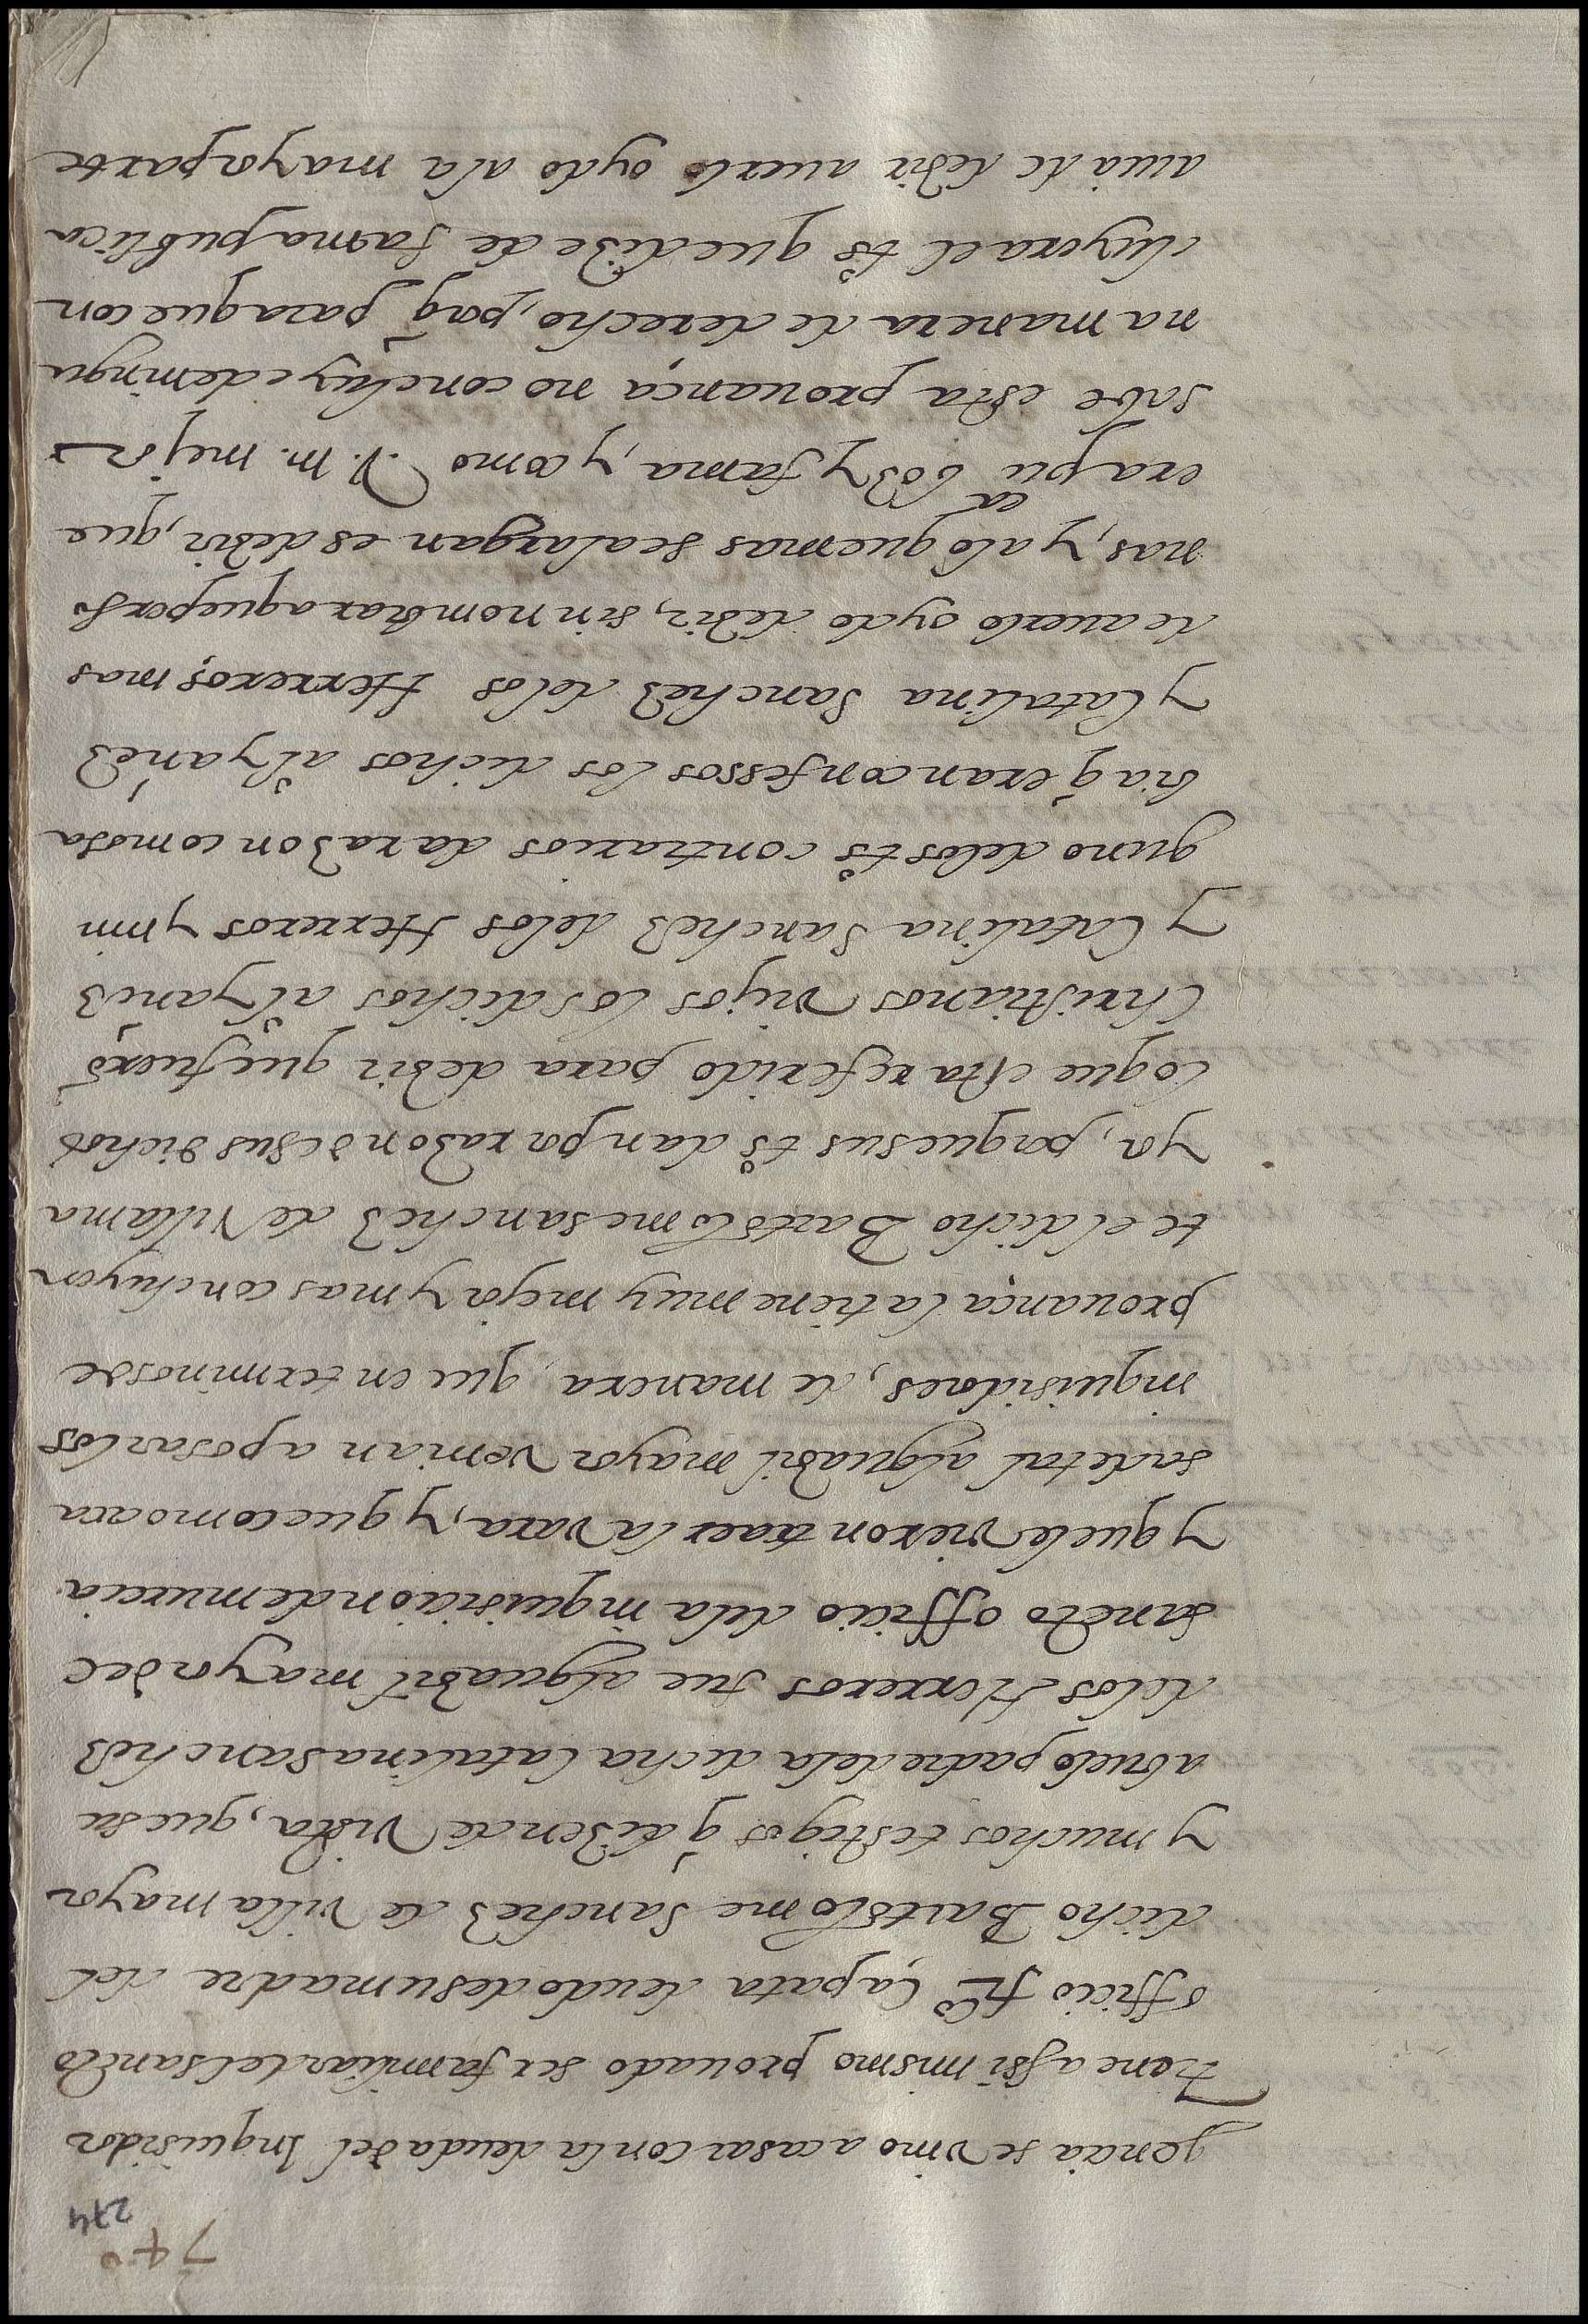 74º
274
gencia se vino a casar con la deuda del Inquisidor
Tiene assi mismo prouado ser familiar del sancto
officio frco Çapata deudo de su madre del
dicho Bartolome Sanchez de Villamayor
y muchos testigos q̃ dizen de vista, que su
abuelo padre dela dicha Catalina Sanchez
delos Herreros fue alguazil mayor del
sancto officio dela inquisicion de murcia
y que le vieron traer la vara, y que como a ca
sa de tal alguazil mayor venian a posar los
inquisidores, de manera, que en terminos de
prouança la tiene muy mejor y mas concluyen
te el dicho Bartolome Sanchez de Villama
yor, porque sus tºs dan por razon de sus dichos
lo que esta referido para dezir que fuerõ
Christianos viejos los dichos alº yanez
y Catalina Sanchez delos Herreros y nin
guno delos tºs contrarios da razon como sa
bia q̃ eran confessos los dichos alº yanez
y Catalina Sanchez delos Herreros, mas
de auerlo oydo dezir, sin nombrar a que perso
nas, y a lo que mas se alargan es dezir, que
era puca boz y fama, y como V. m. mejor
sabe esta prouança no concluye de ningu
na manera de derecho, porq̃ para que con
cluyera el tº que dize de fama publica
auia de dezir auerlo oydo ala mayor parte